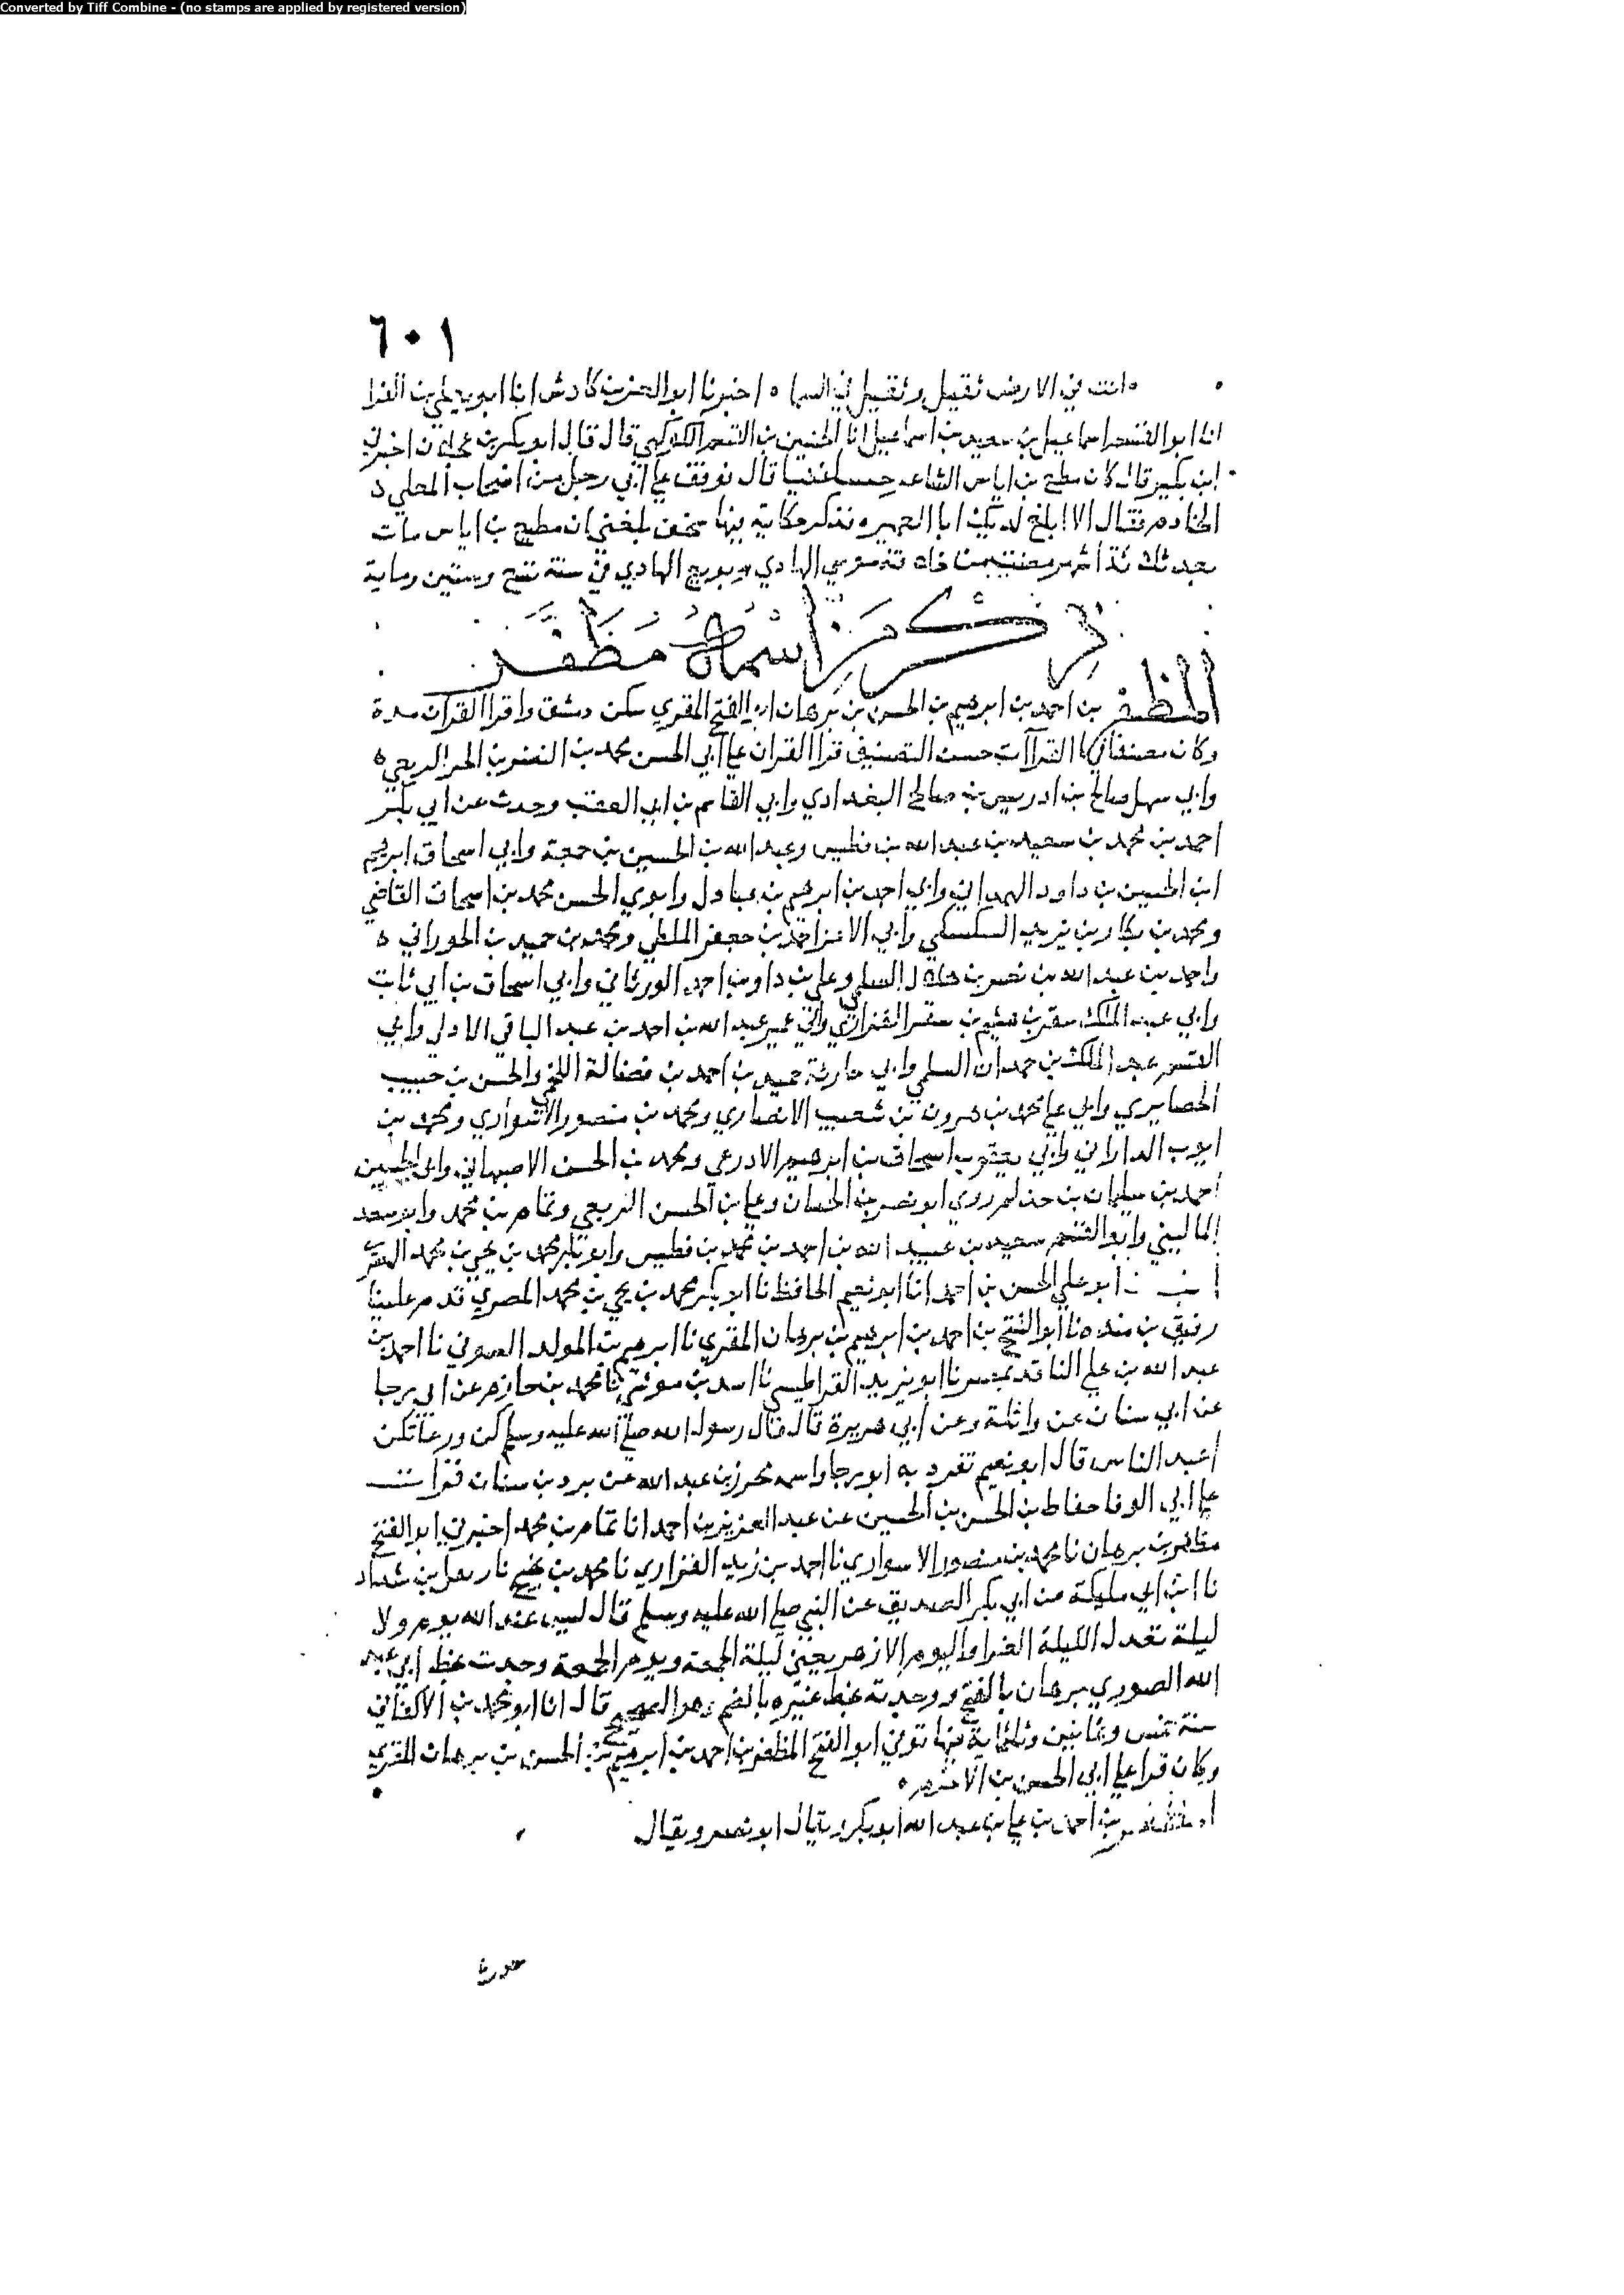 Converted by Tiff Combine - (no stamps are applied by registered version)
٦٠١
انت في الارض ثقيل وثقيل في السما ه اخبرنا ابو العز بن كادش انا ابو يعلي بن الفرا
انا ابو الفتح اسماعيل بن سعيد بن اسماعيل انا الحسين بن القسم الكوكبي قال قال ابو بكر بن عجلان اخبرني
ابن بكير قال كان مطيع بن اياس الشاعر قال فوقف علي ابي رجل من اصحاب
الخادم فقال الا ابلغ لديك ابا العمير ه فذكر حكاية فيها بلغني ان مطيع بن اياس مات
بعد ثلاثة اشهر مضت من خلافة موسي الهادي وبويع الهادي في سنة تسع وستين وماية
ذكر من اسمه مظفر
المظفر بن احمد بن ابرهيم بن الحسن بن برهان ابو الفتح المقري سكن دمشق واقرا القران مدة
وكان مصنفا في القراآت حسن التصنيف قرا القران علي ابي الحسن محمد بن النضر بن الحر الربعي ه
وابي سهل صالح بن ادريس بن صالح البغدادي وابي القاسم بن ابي العقب وحدث عن ابي بكر
احمد بن محمد بن سعيد بن عبد الله بن فطيس وعبد الله بن الحسين بن جمعة وابي اسحاق ابرهيم
ابن الحسين بن داود وابي احمد بن ابرهيم بن عبادل وابوي الحسن محمد بن اسحاق القاضي
ومحمد بن بكار بن يزيد السكسكي وابي الاغر احمد بن جعفر الملطي ومحمد بن حميد بن الحوراني ه
واحمد بن عبد الله بن نصر بن هلال السلمي وعلي بن داود بن احمد الورثاني وابي اسحاق بن ابي ثابت
وابي عبد الملك بن سقر الفزاري وابي عمير عبد الله بن احمد بن عبد الباقي الادلي وابي
القسم عبد الملك بن حمدان السلمي وابي حارثة حميد بن احمد بن فضالة اللخمي والحسن بن حبيب
الحصايري وابي علي محمد بن هرون بن شعيب الانصاري ومحمد بن منصور الاسواري ومحمد بن
ايوب الداراني وابي يعقوب اسحاق بن ابرهيم الادرعي ومحمد بن الحسن الاصبهاني وابي الحسين
احمد بن سليمان بن حذلم روي ابو نصر بن الجبان وعلي بن الحسن الربعي وتمام بن محمد وابو سعد
الماليني وابو الفتح سعيد بن عبيد الله بن احمد بن محمد بن فطيس وابو بكر محمد بن يحيي بن محمد
ابو علي الحسن بن احمد انا ابو نعيم الحافظ نا ابو بكر محمد بن يحيي بن محمد المصري قدم علينا
رفيق بن منده نا ابو الفتح بن احمد بن ابرهيم بن برهان المقري نا ابرهيم بن المولد الصوفي نا احمد بن
عبد الله بن علي الناقد بمصر نا ابو يزيد القراطيسي نا اسد بن موسي نا محمد بن حازم عن ابي رجا
عن ابي سنان عن واثلة وعن ابي هريرة قال قال رسول الله صلي الله عليه وسلم كن ورعا تكن
اعبد الناس قال ابو نعيم تفرد به ابو رجا واسمه محرز بن عبد الله عن برد بن سنان قرات
علي ابي الوفا حفاظ بن الحسن بن الحسين عن عبد العزيز بن احمد انا تمام بن محمد اخبرني ابو الفتح
مظفر بن برهان نا محمد بن منصور الاسواري نا احمد بن زيد الفزاري نا محمد بن نا بن شداد
نا ابن ابي مليكة عن ابي بكر الصديق عن النبي صلي الله عليه وسلم قال ليس عند الله يوم ولا
ليلة تعدل الليلة الغرا واليوم الازهر يعني ليلة الجمعة ويوم الجمعة وجدت بخط ابي عبد
الله الصوري برهان بالفتح ووجدته بخط غيره بالضم وهو الصحيح قال انا ابو محمد بن الاكفاني
سنة خمس وثمانين وثلثماية فيها توفي ابو الفتح المظفر بن احمد بن ابرهيم بن الحسن بن برهان المقري
وكان قرا علي ابي الحسن بن الاخرم ه
المظفر بن احمد بن علي بن عبد الله ابو بكر ويقال ابو نصر ويقال
حدث